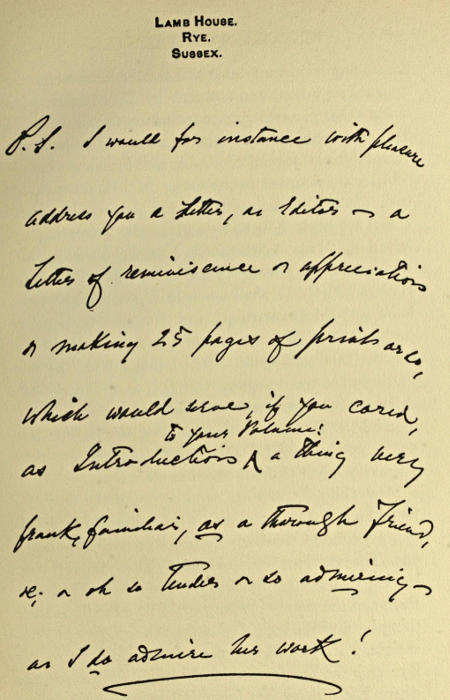 LAMB HOUSE.
RYE.
SUSSEX.
P.S. I would for instance with pleasure
address you a Letter, as Editor — a
Letter of reminiscence & appreciation
& making 25 pages of print or so,
which would serve, if you cared,
to your Volume:
as Introduction ^ a thing very
frank, familiar, as a thorough friend,
&c; & oh so tender & so admiring —
as I do admire her work!